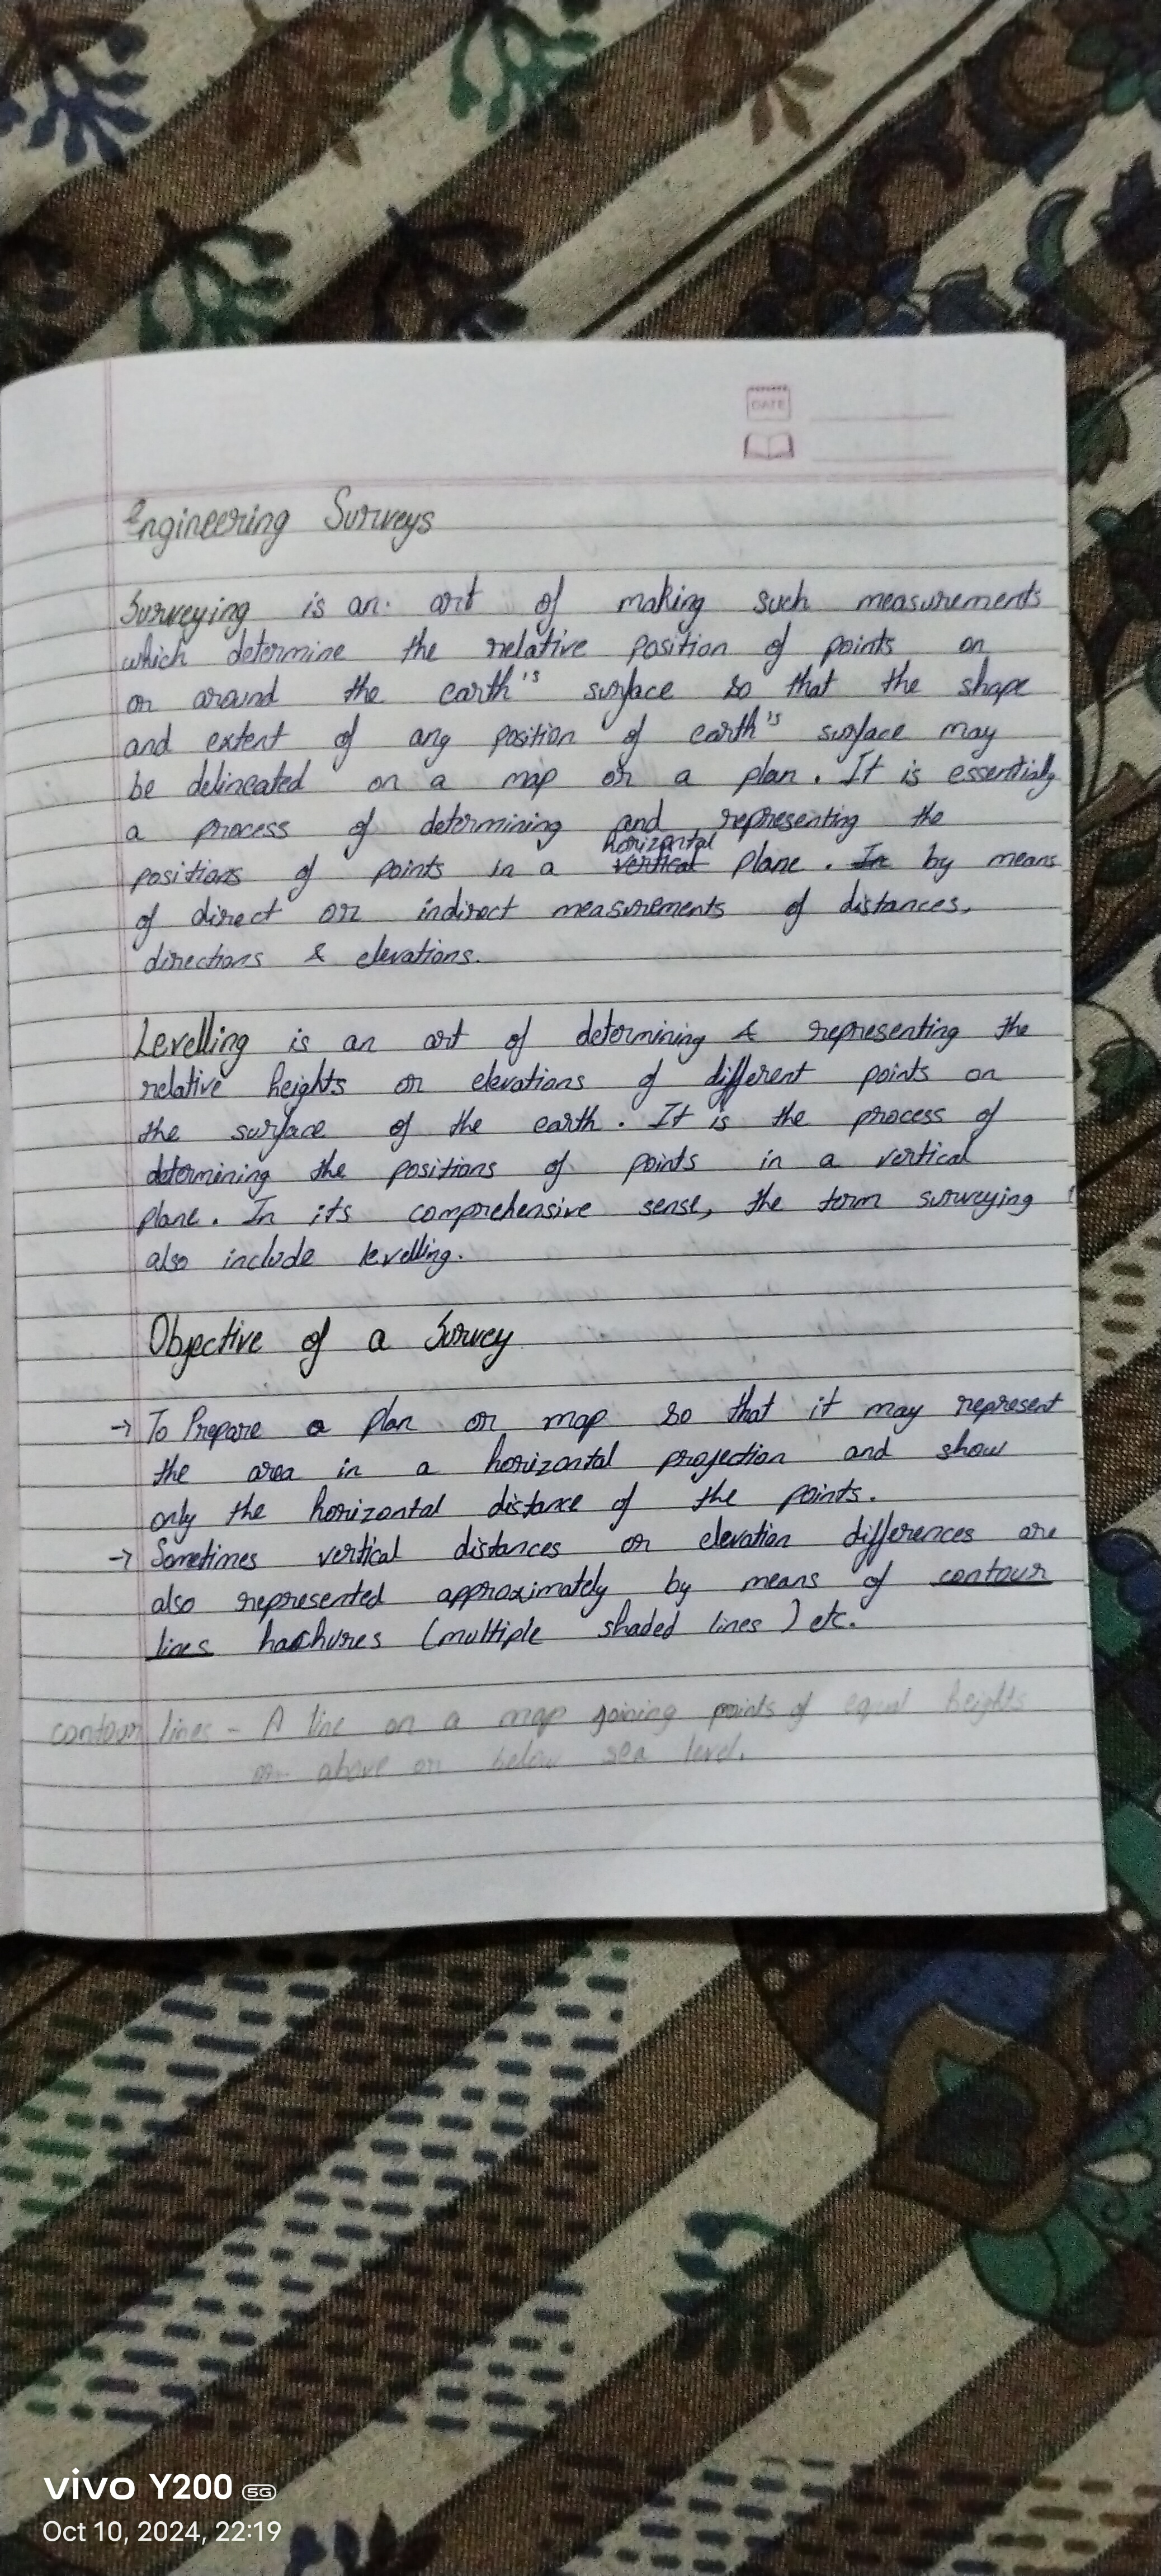 DATE
Engineering Surveys
Surveying is an art of making such measurements
which determine the relative position of points on
or around the earth's surface so that the shape
and extent of any position of earth's surface may
be delineated on a map or a plan. It is essentially
a process of determining and representing the
horizontal
positions of points in a vertical plane. In by means
of direct or indirect measurements of distances,
directions & elevations.
Levelling is an art of determining & representing the
relative heights or elevations of different points on
the surface of the earth. It is the process of
determining the positions of points in a vertical
plane. In its comprehensive sense, the term surveying
also include levelling.
Objective of a Survey
→ To Prepare a plan or map so that it may represent
the area in a horizontal projection and show
only the horizontal distance of the points.
→ Sometimes vertical distances or elevation differences are
also represented approximately by means of contour
lines hachures (multiple shaded lines) etc.
contour lines - A line on a map joining points of equal heights
or above or below sea level.
vivo Y200 5G
Oct 10, 2024, 22:19